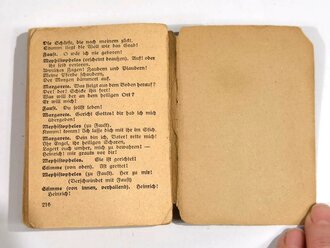 Die Schärfe, die nach meinem zückt.
Stumm liegt die Welt wie das Grab!
Faust. O wär' ich nie geboren!
Mephistopheles (erscheint draußen). Auf! oder
ihr seid verloren.
Unnützes Zagen! Zaudern und Plaudern!
Meine Pferde schaudern,
Der Morgen dämmert auf.
Margarete. Was steigt aus dem Boden herauf?
Der! der! Schicke ihn fort!
Was will der an dem heiligen Ort?
Er will mich!
Faust. Du sollst leben!
Margarete. Gericht Gottes! dir hab ich mich
übergeben!
Mephistopheles (zu Faust).
Komm! komm! Ich lasse dich mit ihr im Stich.
Margarete. Dein bin ich, Vater! rette mich!
Ihr Engel, ihr heiligen Scharen,
Lagert euch umher, mich zu bewahren!
Heinrich! mir graut's vor dir!
Mephistopheles. Sie ist gerichtet!
Stimme (von oben). Ist gerettet!
Mephistopheles (zu Faust). Her zu mir!
(Verschwindet mit Faust)
Stimme (von innen, verhallend). Heinrich!
Heinrich!
216